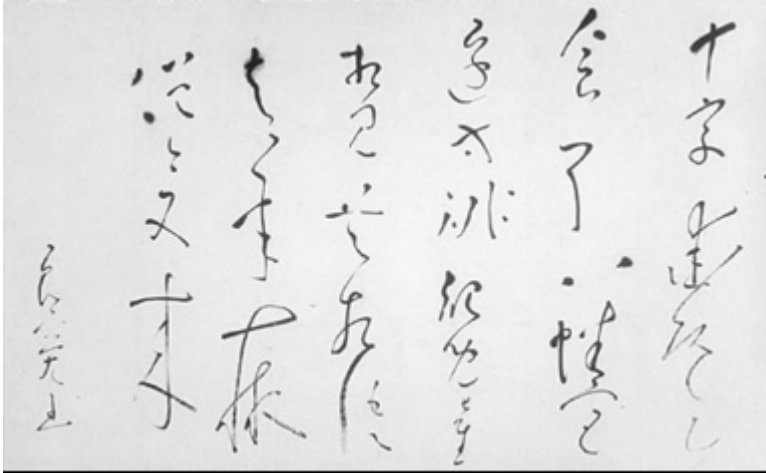 十字街頭乞
食了八幡宮
邊方徘徊兒童
相見共相語
去年癡
僧今又來
良寛書